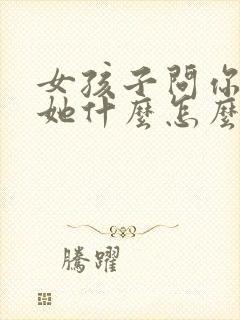 女孩子問你
她什麼怎麼
騰躍